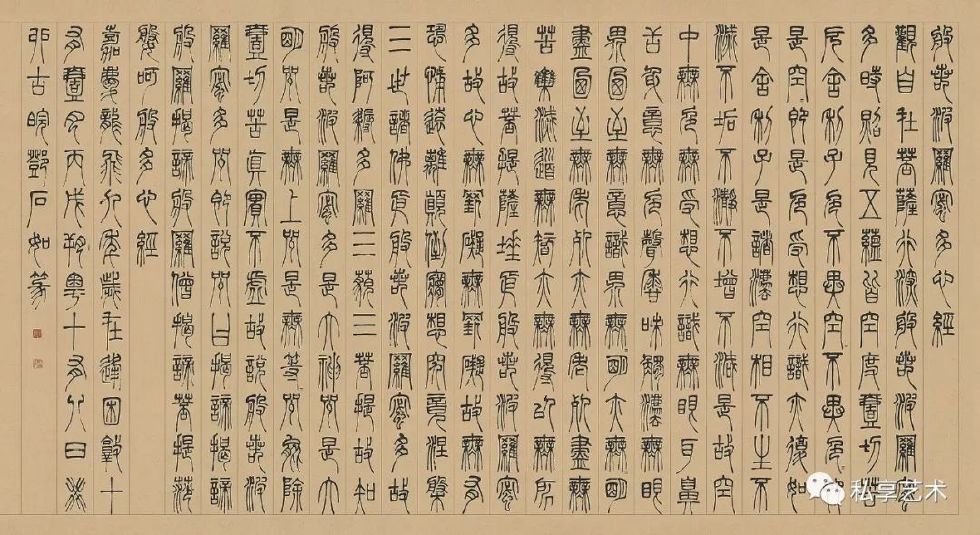 般若波羅蜜多心經
觀自在菩薩行深般若波羅蜜
多時照見五蘊皆空度壹切苦
厄舍利子色不異空不異色即
是空即是色受想行識亦復如
是舍利子是諸法空相不生不
滅不垢不瀞不增不減是故空
中無色無受想行識無眼耳鼻
舌身意無色聲香味觸法無眼
界乃至無意識界無明亦無明
盡乃至無老死亦無老死盡無
苦集滅道無智亦無得以無所
得故菩提薩埵依般若波羅蜜
多故心無罣礙無罣礙故無有
恐怖遠離顛倒夢想究竟涅槃
三世諸佛依般若波羅蜜多故
得阿耨多羅三藐三菩提故知
般若波羅蜜多是大神咒是大
明咒是無上咒是無等咒能除
壹切苦真實不虛故說般若波
羅蜜多咒即說咒曰揭諦揭諦
般羅揭諦般羅僧揭諦菩提薩
婆呵般多心經
嘉慶龍飛九年歲在逢困敦十
有壹月丙戌朔粵十有八日癸
卯古皖鄧石如篆
私享艺术